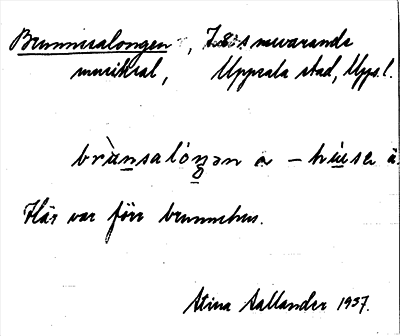 Brunnssalongen, I.8:s nuvarande
musiksal, Uppsala stad, Upps.l.
brùnsalóŋən a – hùsə ä
Här var förr brunnshus.
Stina Aallander 1937.